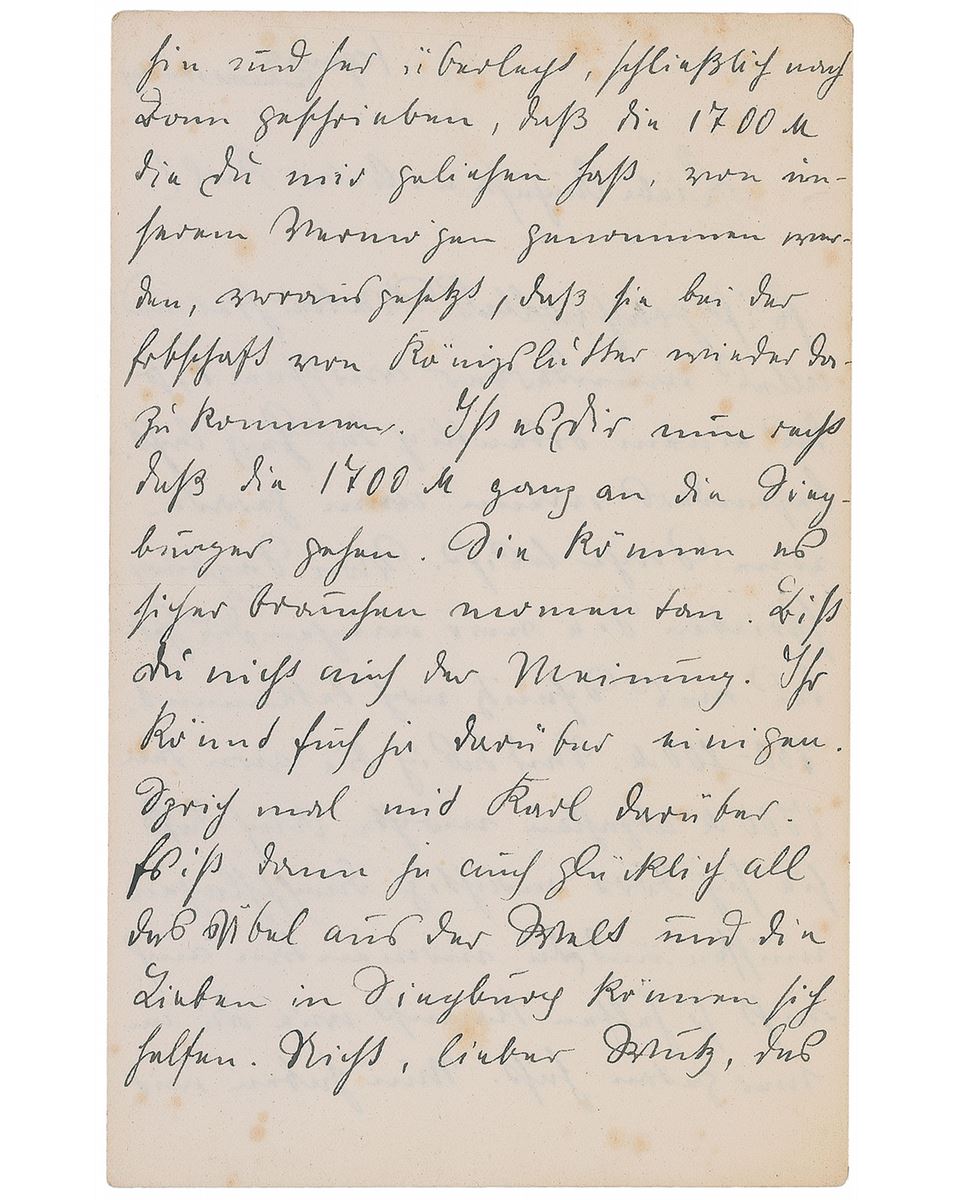 hin und her überlegt, schließlich nach
Bonn geschrieben, daß die 1700 M
die Du mir geliehen hast, von un-
serem Vermögen genommen wer-
den, vorausgesetzt, daß sie bei der
Erbschaft von Königslutter wieder da-
zu kommen. Ist es Dir nun recht
daß die 1700 M ganz an die Sieg-
burger gehen. Die können es
sicher brauchen momentan. Bist
Du nicht auch der Meinung. Ihr
könnt Euch ja darüber einigen.
Sprich mal mit Karl darüber.
Es ist dann ja auch glücklich all
das Übel aus der Welt und die
Lieben in Siegburg können sich
helfen. Nicht, lieber Wutz, das